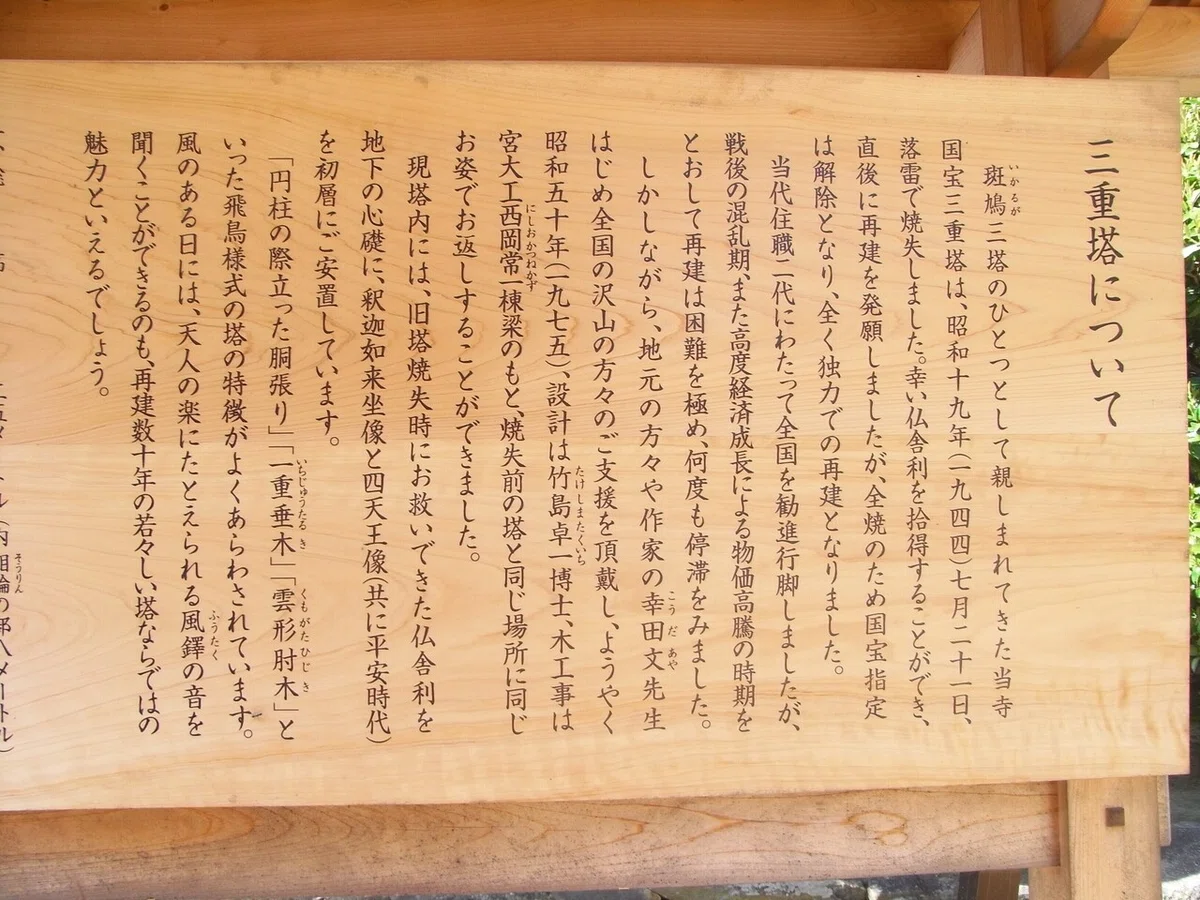 三重塔について
斑鳩三塔のひとつとして親しまれてきた当寺
いかるが
国宝三重塔は、昭和十九年(一九四四)七月二十一日、
落雷で焼失しました。幸い仏舎利を拾得することができ、
直後に再建を発願しましたが、全焼のため国宝指定
は解除となり、全く独力での再建となりました。
当代住職二代にわたって全国を勧進行脚しましたが、
戦後の混乱期、また高度経済成長による物価高騰の時期を
とおして再建は困難を極め、何度も停滞をみました。
しかしながら、地元の方々や作家の幸田文先生
こうだあや
はじめ全国の沢山の方々のご支援を頂戴し、ようやく
昭和五十年(一九七五)、設計は竹島卓一博士、木工事は
たけしまたくいち
宮大工西岡常一棟梁のもと、焼失前の塔と同じ場所に同じ
にしおかつねかず
お姿でお返しすることができました。
現塔内には、旧塔焼失時にお救いできた仏舎利を
地下の心礎に、釈迦如来坐像と四天王像(共に平安時代)
を初層にご安置しています。
「円柱の際立った胴張り」「一重垂木」「雲形肘木」と
いちじゅうたるき くもがたひじき
いった飛鳥様式の塔の特徴がよくあらわされています。
風のある日には、天人の楽にたとえられる風鐸の音を
ふうたく
聞くことができるのも、再建数十年の若々しい塔ならではの
魅力といえるでしょう。